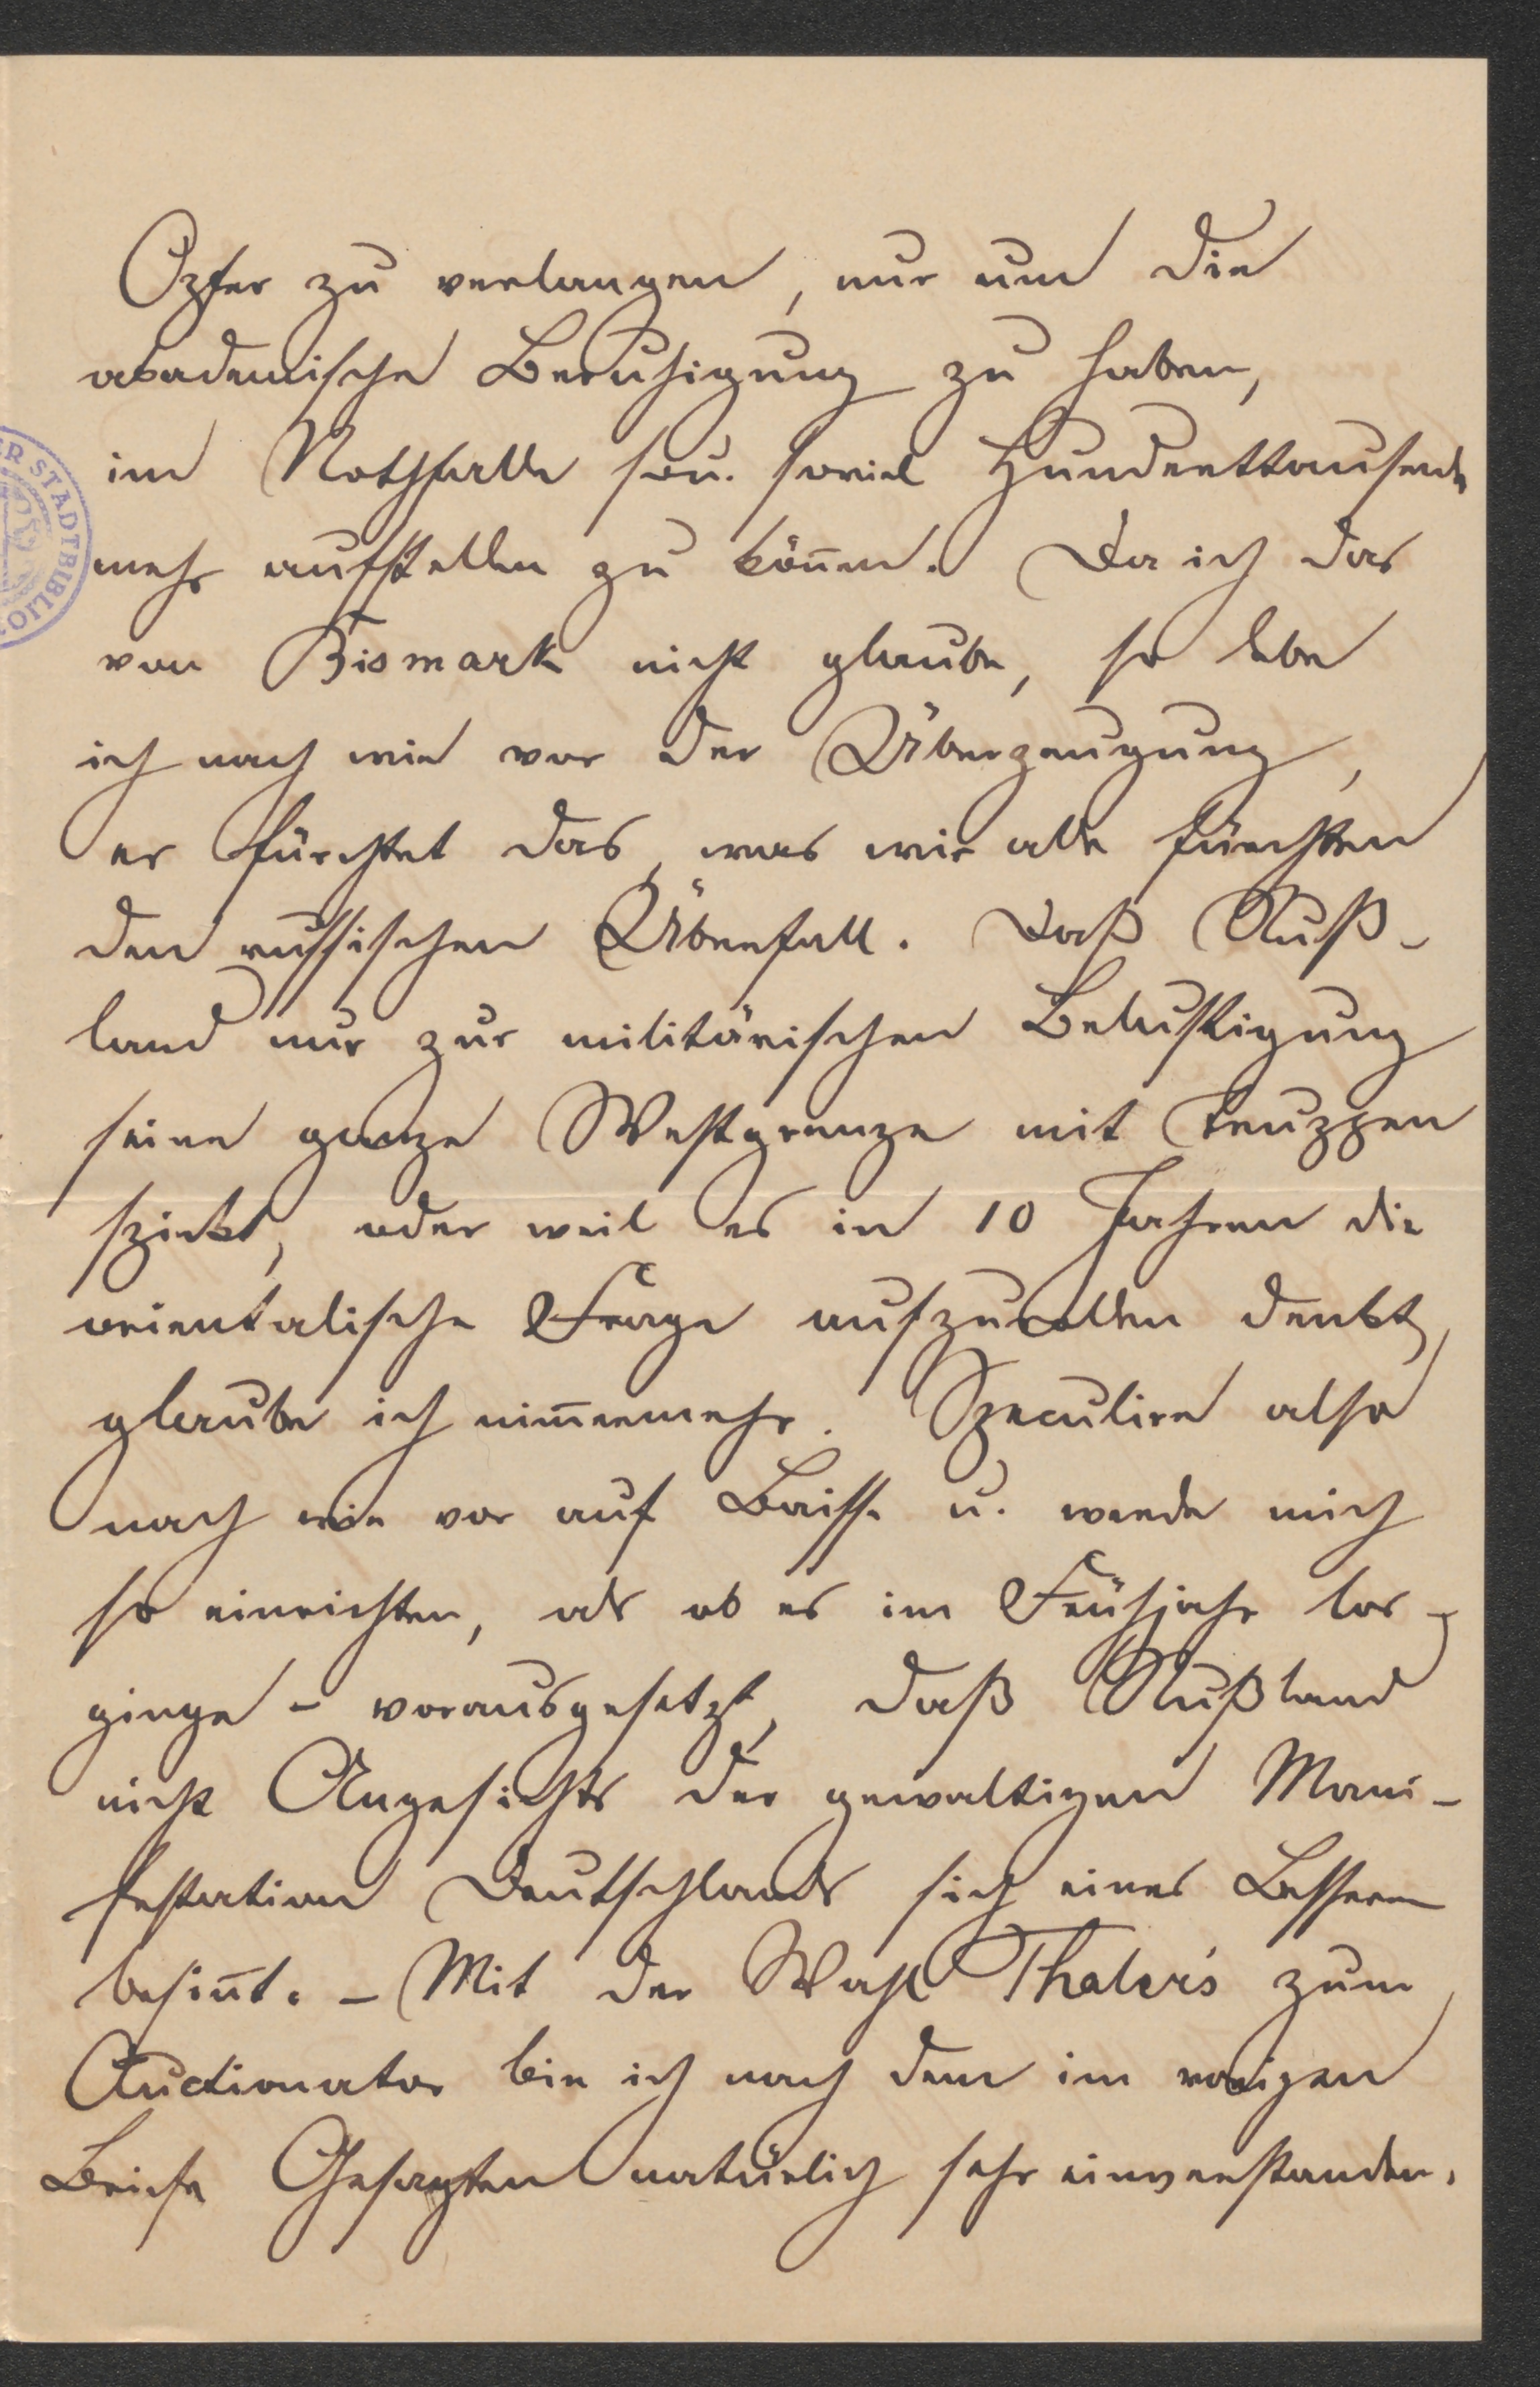 Opfer zu verlangen, nur um die
akademische Beruhigung zu haben,
im Nothfalle so u. soviel Hunderttausende
mehr aufstellen zu kön̄en. Da ich das
von Bismark nicht glaube, so lebe
ich nach wie vor der Überzeugung,
er fürchtet das, was wir alle fürchten
den russischen Überfall. Daß Ruß-
land nur zur militärischen Belustigung
seine ganze Westgrenze mit Truppen
spickt, oder weil es in 10 Jahren die
orientalische Frage aufzurollen denkt,
glaube ich nim̄ermehr. Speculire also
nach wie vor auf Baisse u. werde mich
so einrichten, als ob es im Frühjahr los-
ginge – vorausgesetzt, daß Rußland
nicht Angesichts der gewaltigen Mani-
festation Deutschlands sich eines Bessern
besin̄t. – Mit der Wahl Thaler's zum
Auctionator bin ich nach dem im vorigen
Briefe Gesagten natürlich sehr einverstanden.
ER STADTBIBLIO